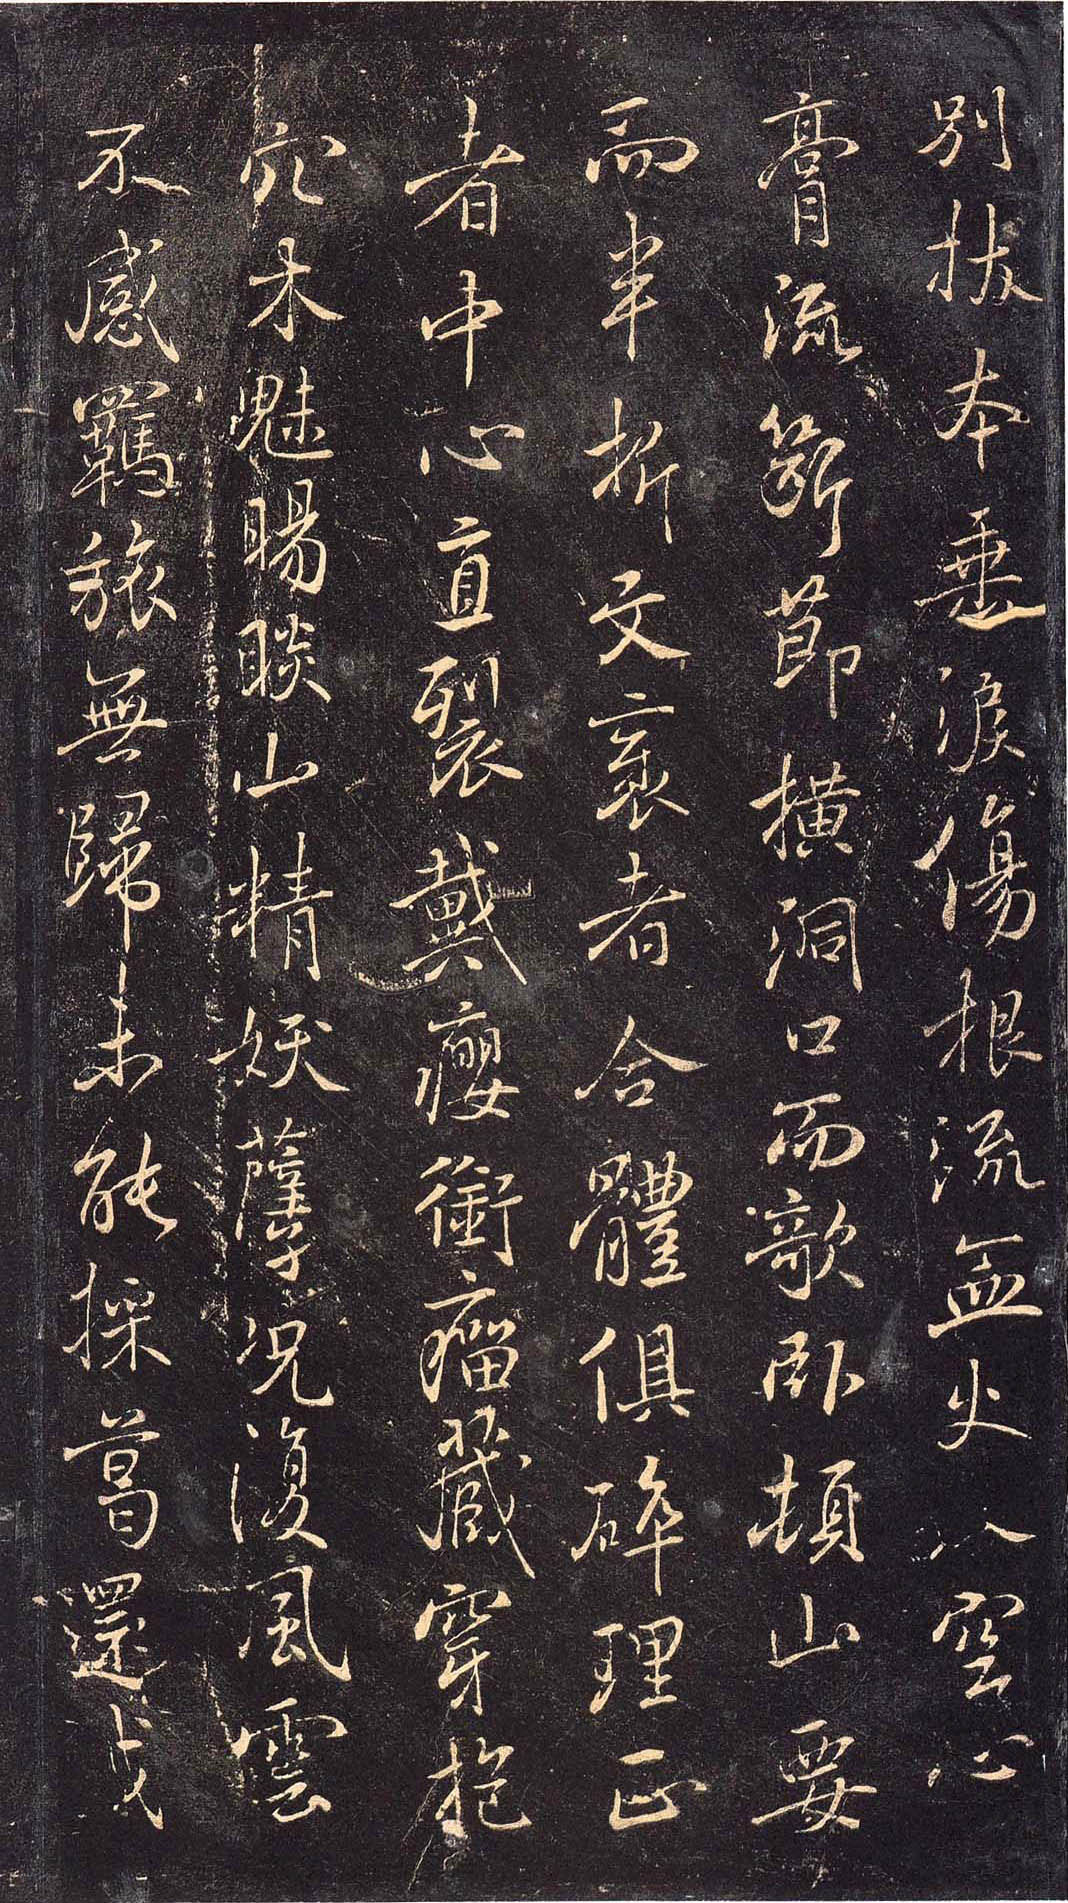 別拔本垂淚傷根流血火入空心
膏流斷節橫洞口而歌臥頓山要
而半折文衺者合體俱碎理正
者中心直裂戴癭銜瘤藏穿抱
穴木魅睗睒山精妖孽况復風雲
不感羈旅無歸未能採葛還成